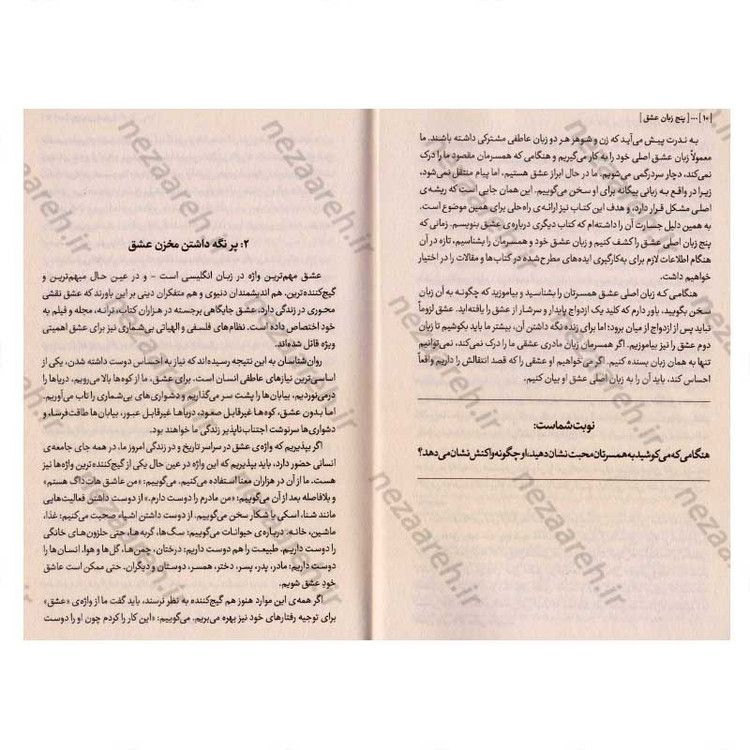 | ۱۰ | ... [ پنج زبان عشق ]
به ندرت پیش می‌آید که زن و شوهر هر دو زبان عاطفی مشترکی داشته باشند. ما
معمولاً زبان عشق اصلی خود را به کار می‌گیریم و هنگامی که همسرمان مقصود ما را درک
نمی‌کند، دچار سردرگمی می‌شویم. ما در حال ابراز عشق هستیم اما، پیام منتقل نمی‌شود،
زیرا در واقع به زبانی بیگانه برای او سخن می‌گوییم. این همان جایی است که ریشه‌ی
اصلی مشکل قرار دارد، و هدف این کتاب نیز ارائه‌ی راه‌حلی برای همین موضوع است.
به همین دلیل جسارت آن را داشته‌ام که کتاب دیگری درباره‌ی عشق بنویسم. زمانی که
پنج زبان اصلی عشق را کشف کنیم و زبان عشق خود و همسرمان را بشناسیم، تازه در آن
هنگام اطلاعات لازم برای به‌کارگیری ایده‌های مطرح‌شده در کتاب‌ها و مقالات را در اختیار
خواهیم داشت.
هنگامی که زبان اصلی عشق همسرتان را بشناسید و بیاموزید که چگونه به آن زبان
سخن بگویید، باور دارم که کلید یک ازدواج پایدار و سرشار از عشق را یافته‌اید. عشق لزوماً
نباید پس از ازدواج از میان برود؛ اما برای زنده نگه داشتن آن، بیشتر ما باید بکوشیم تا زبان
دوم عشق را نیز بیاموزیم. اگر همسرمان زبان مادری عشقی ما را درک نمی‌کند، نمی‌توانیم
تنها به همان زبان بسنده کنیم. اگر می‌خواهیم او عشقی را که قصد انتقالش را داریم واقعاً
احساس کند، باید آن را به زبان اصلی عشق او بیان کنیم.
نوبت شماست:
هنگامی که می‌کوشید به همسرتان محبت نشان دهید، او چگونه واکنش نشان می‌دهد؟
۲: پر نگه داشتن مخزن عشق
عشق مهم‌ترین واژه در زبان انگلیسی است - و در عین حال مبهم‌ترین و
گیج‌کننده‌ترین. هم اندیشمندان دنیوی و هم متفکران دینی بر این باورند که عشق نقشی
محوری در زندگی دارد. عشق جایگاهی برجسته در هزاران کتاب، ترانه، مجله و فیلم به
خود اختصاص داده است. نظام‌های فلسفی و الهیاتی بی‌شماری نیز برای عشق اهمیتی
ویژه قائل شده‌اند.
روان‌شناسان به این نتیجه رسیده‌اند که نیاز به احساس دوست داشته شدن، یکی از
اساسی‌ترین نیازهای عاطفی انسان است. برای عشق، ما از کوه‌ها بالا می‌رویم، دریاها را
درمی‌نوردیم، بیابان‌ها را پشت سر می‌گذاریم و دشواری‌های بی‌شماری را تاب می‌آوریم.
اما بدون عشق، کوه‌ها غیرقابل صعود، دریاها غیرقابل عبور، بیابان‌ها طاقت‌فرسا، و
دشواری‌ها سرنوشت اجتناب‌ناپذیر زندگی ما خواهند بود.
اگر بپذیریم که واژه‌ی عشق در سراسر تاریخ و در زندگی امروز ما، در همه جای جامعه‌ی
انسانی حضور دارد، باید بپذیریم که این واژه در عین حال یکی از گیج‌کننده‌ترین واژه‌ها نیز
هست. ما از آن در هزاران معنا استفاده می‌کنیم. می‌گوییم: «من عاشق هات داگ هستم»
و بلافاصله بعد از آن می‌گوییم: «من مادرم را دوست دارم.» از دوست داشتن فعالیت‌هایی
مانند شنا، اسکی یا شکار سخن می‌گوییم. از دوست داشتن اشیاء صحبت می‌کنیم: غذا،
ماشین، خانه. درباره‌ی حیوانات می‌گوییم: سگ‌ها، گربه‌ها، حتی حلزون‌های خانگی
را دوست داریم. طبیعت را هم دوست داریم: درختان، چمن‌ها، گل‌ها و هوا. انسان‌ها را
دوست داریم: مادر، پدر، پسر، دختر، همسر، دوستان و دیگران. حتی ممکن است عاشق
خود عشق شویم.
اگر همه‌ی این موارد هنوز هم گیج‌کننده به نظر نرسند، باید گفت ما از واژه‌ی «عشق»
برای توجیه رفتارهای خود نیز بهره می‌بریم. می‌گوییم: «این کار را کردم چون او را دوست
nezaareh.ir
nezaareh.ir
nezaareh.ir
nezaareh.ir
nezaareh.ir
nezaareh.ir